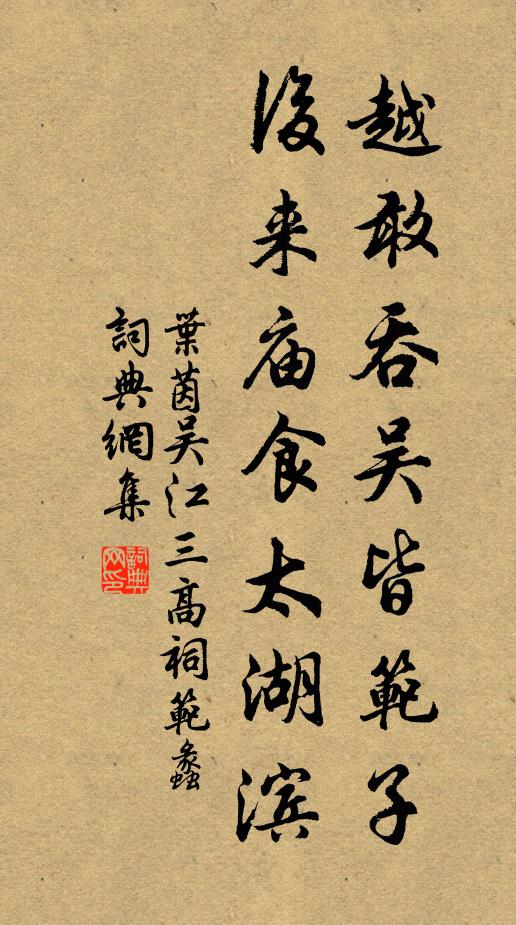 越敢吞吴皆範子
後来庙食太湖滨
葉茵吴江三高祠範蠡
詞典網集
詞典网印